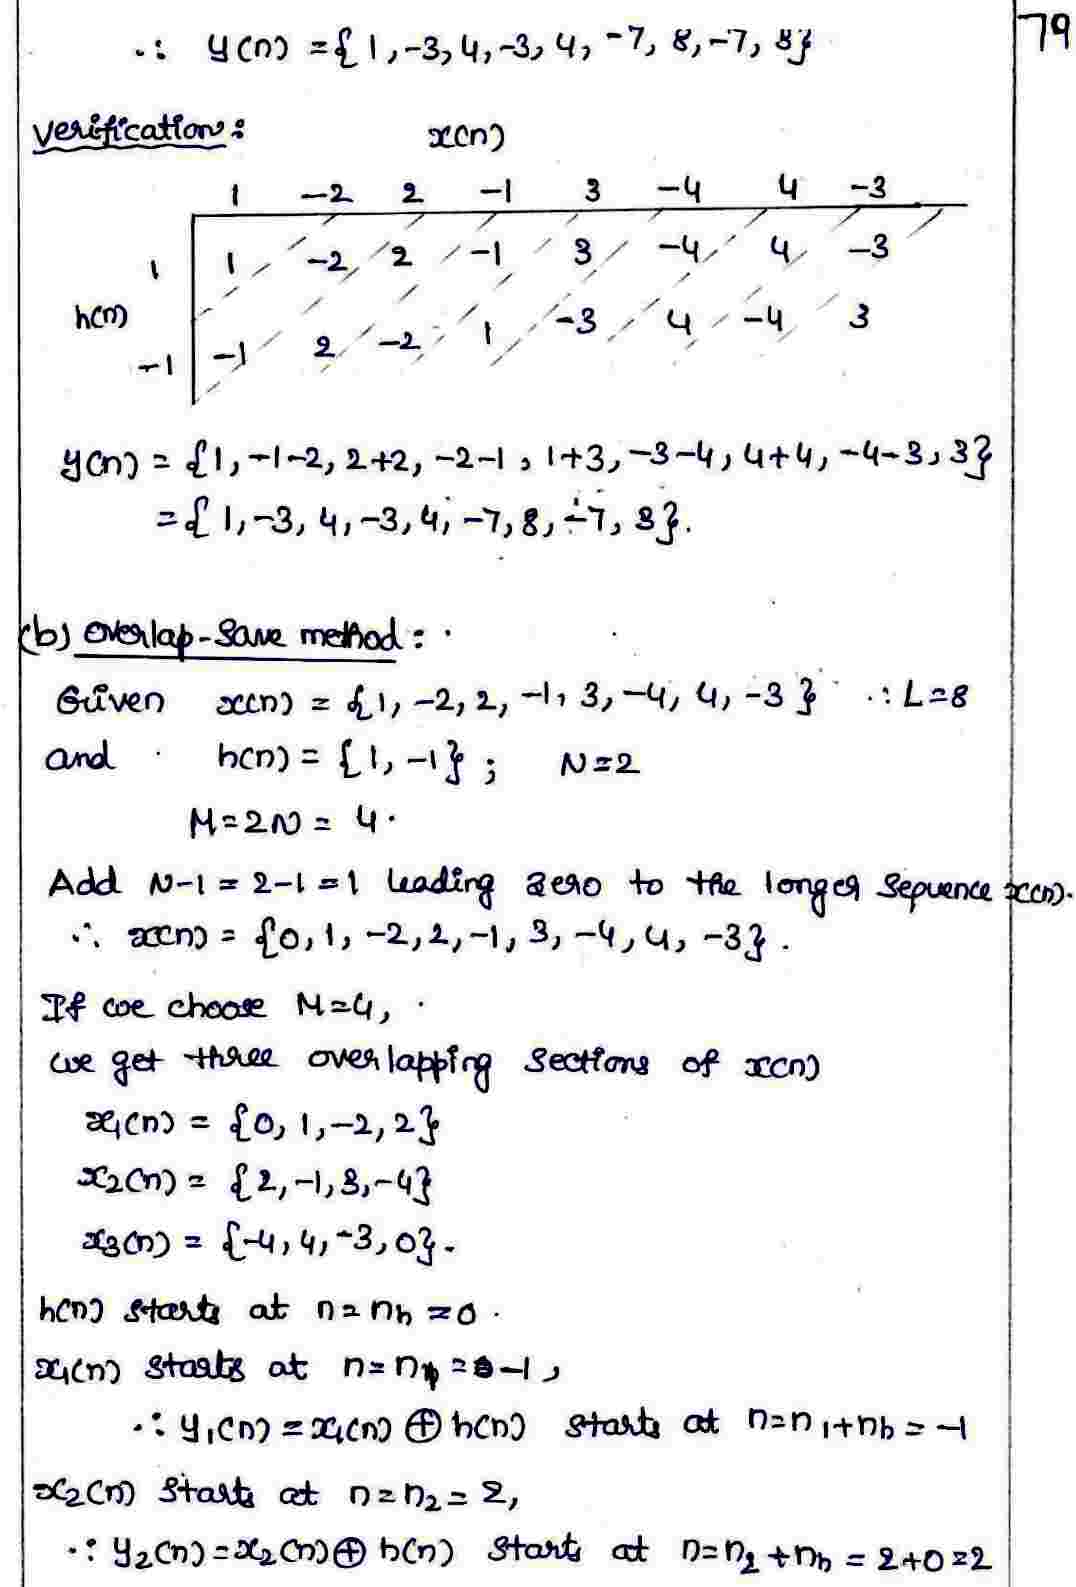 79
∴ y(n) = {1, -3, 4, -3, 4, -7, 8, -7, 3}
Verification:
x(n)
1 -2 2 -1 3 -4 4 -3
1 1 -2 2 -1 3 -4 4 -3
h(n)
-1 -1 2 -2 1 -3 4 -4 3
y(n) = {1, -1-2, 2+2, -2-1, 1+3, -3-4, 4+4, -4-3, 3}
= {1, -3, 4, -3, 4, -7, 8, -7, 3}.
(b) Overlap-Save method:
Given x(n) = {1, -2, 2, -1, 3, -4, 4, -3} ∴ L=8
and h(n) = {1, -1}; N=2
M=2N = 4.
Add N-1 = 2-1 = 1 leading zero to the longer sequence x(n).
∴ x(n) = {0, 1, -2, 2, -1, 3, -4, 4, -3}.
If we choose M=4,
we get three overlapping sections of x(n)
x₁(n) = {0, 1, -2, 2}
x₂(n) = {2, -1, 3, -4}
x₃(n) = {-4, 4, -3, 0}.
h(n) starts at n=nh =0.
x₁(n) starts at n=n₁ = -1,
∴ y₁(n) = x₁(n) ⊕ h(n) starts at n=n₁+nh = -1
x₂(n) starts at n=n₂ = 2,
∴ y₂(n) = x₂(n) ⊕ h(n) starts at n=n₂+nh = 2+0=2